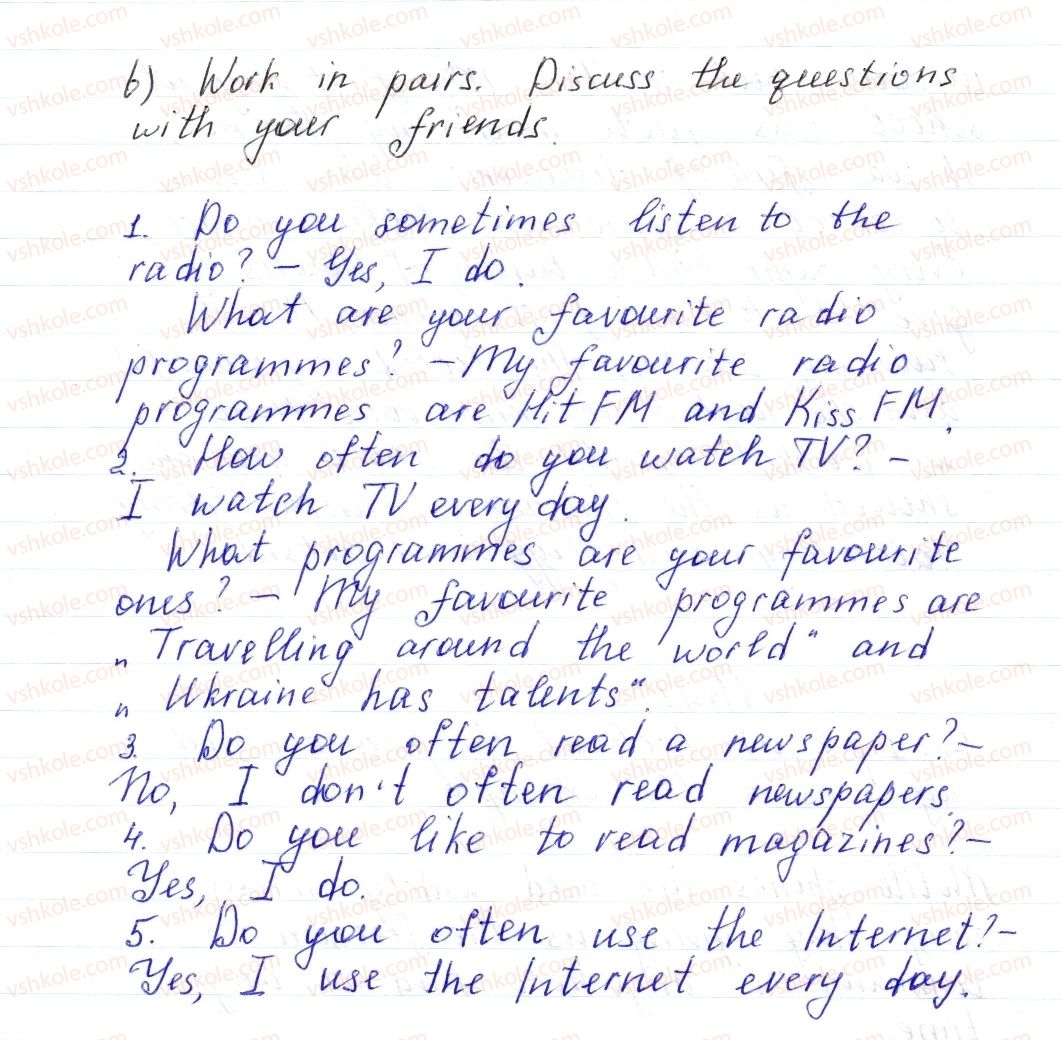 b) Work in pairs. Discuss the questions
with your friends.
1. Do you sometimes listen to the
radio? – Yes, I do.
What are your favourite radio
programmes? – My favourite radio
programmes are Hit FM and Kiss FM.
2. How often do you watch TV? –
I watch TV every day.
What programmes are your favourite
ones? – My favourite programmes are
„Travelling around the world“ and
„Ukraine has talents“.
3. Do you often read a newspaper? –
No, I don't often read newspapers.
4. Do you like to read magazines? –
Yes, I do.
5. Do you often use the Internet? –
Yes, I use the Internet every day.
vshkole.com